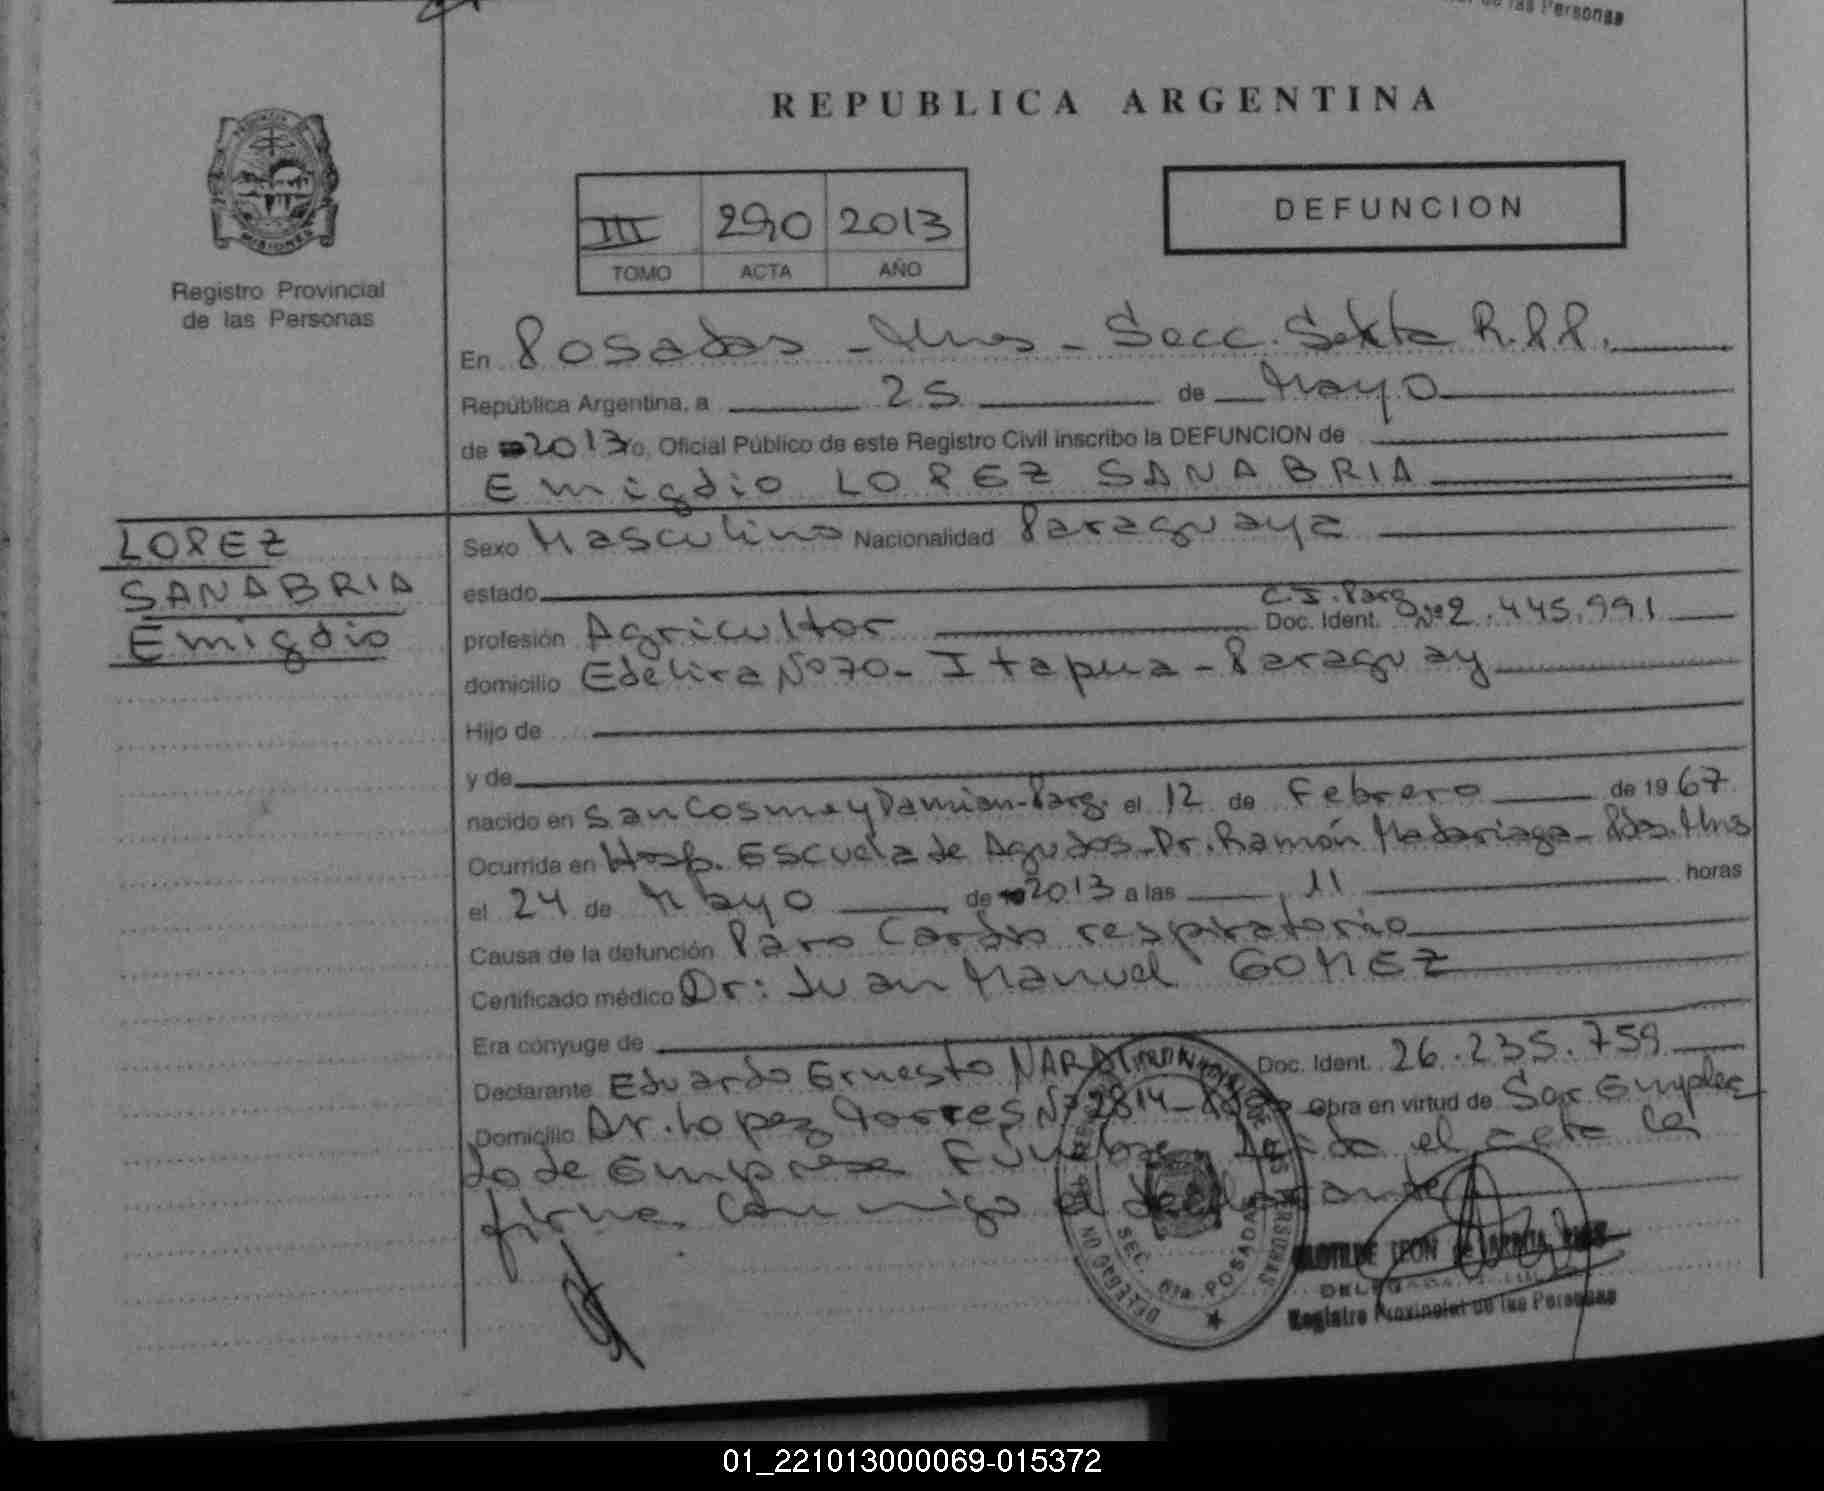 de las Personas
REPUBLICA ARGENTINA
III 290 2013
TOMO ACTA AÑO
DEFUNCION
MISIONES
Registro Provincial
de las Personas
En Posadas - Mnes - Secc. Sexta R.P.P.
República Argentina, a 25 de Mayo
de 2013 yo, Oficial Público de este Registro Civil inscribo la DEFUNCION de
Emigdio LOPEZ SANABRIA
LOPEZ
SANABRIA
Emigdio
Sexo Masculino Nacionalidad Paraguaya
estado
profesión Agricultor C.I. Parg Doc. Ident. Nº 2.445.991
domicilio Edelira Nº 70 - Itapua - Paraguay
Hijo de
y de
nacido en San Cosme y Damian - Parg. el 12 de Febrero de 1967
Ocurrida en Hosp. Escuela de Agudos - Dr. Ramón Madariaga - Pdas. Mnes
el 24 de Mayo de 2013 a las 11 horas
Causa de la defunción Paro Cardio respiratorio
Certificado médico Dr: Juan Manuel GOMEZ
Era cónyuge de
Declarante Eduardo Ernesto Doc. Ident. 26.235.759
Domicilio Av. Lopez Torres Nº 2814 - Pdas Obra en virtud de Ser Emplea
do de Empresa Fúnebre Leida el acta la
firma conmigo el declarante
SEC. 6ta. POSADAS
LEON de
DELEGADA
Registro Provincial de las Personas
01_221013000069-015372